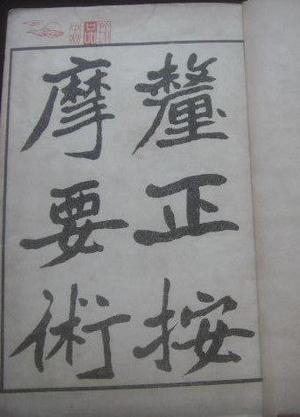 釐正按
摩要術